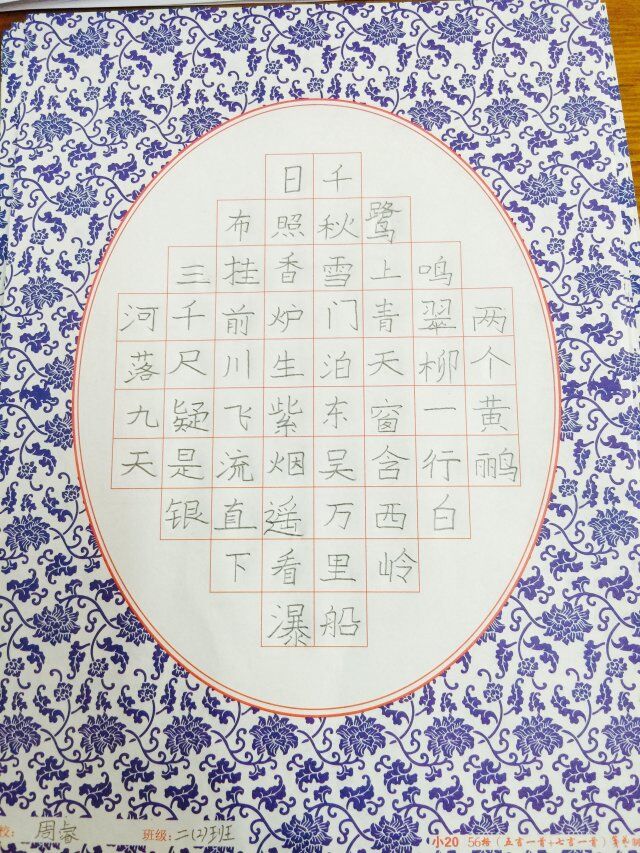 两个黄鹂
鸣翠柳一行白
鹭上青天窗含西岭
千秋雪门泊东吴万里船
日照香炉生紫烟遥看瀑
布挂前川飞流直下
三千尺疑是银
河落九天
校: 周
班级: 二(2)班
小20 56格(五言一首+七言一首)